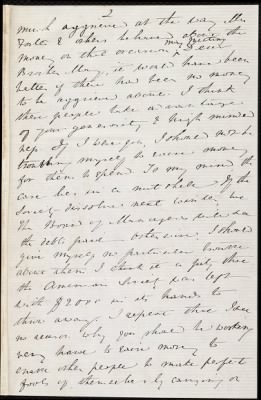 2
much aggrieved at the way Mr.
Foster & others behaved about the
money on that occasion, my Dear
Brother May, it would have been
better if there had been no money
to be aggrieved about. I think
these people take advantage
of your generosity & high minded
ness. If I were you, I should not be
troubling myself to raise money
for them to spend. To my mind the
case lies in a nut shell. If the
Society dissolves next
The Board of Managers
the debts paid I should
give myself no particular trouble
about them. I think it a pity that
the American Society was left
with $2000 in its hands to
throw away. I repeat that I see
no reason why you should be working
very hard to raise money to
enable other people to make perfect
fools of themselves by carrying on